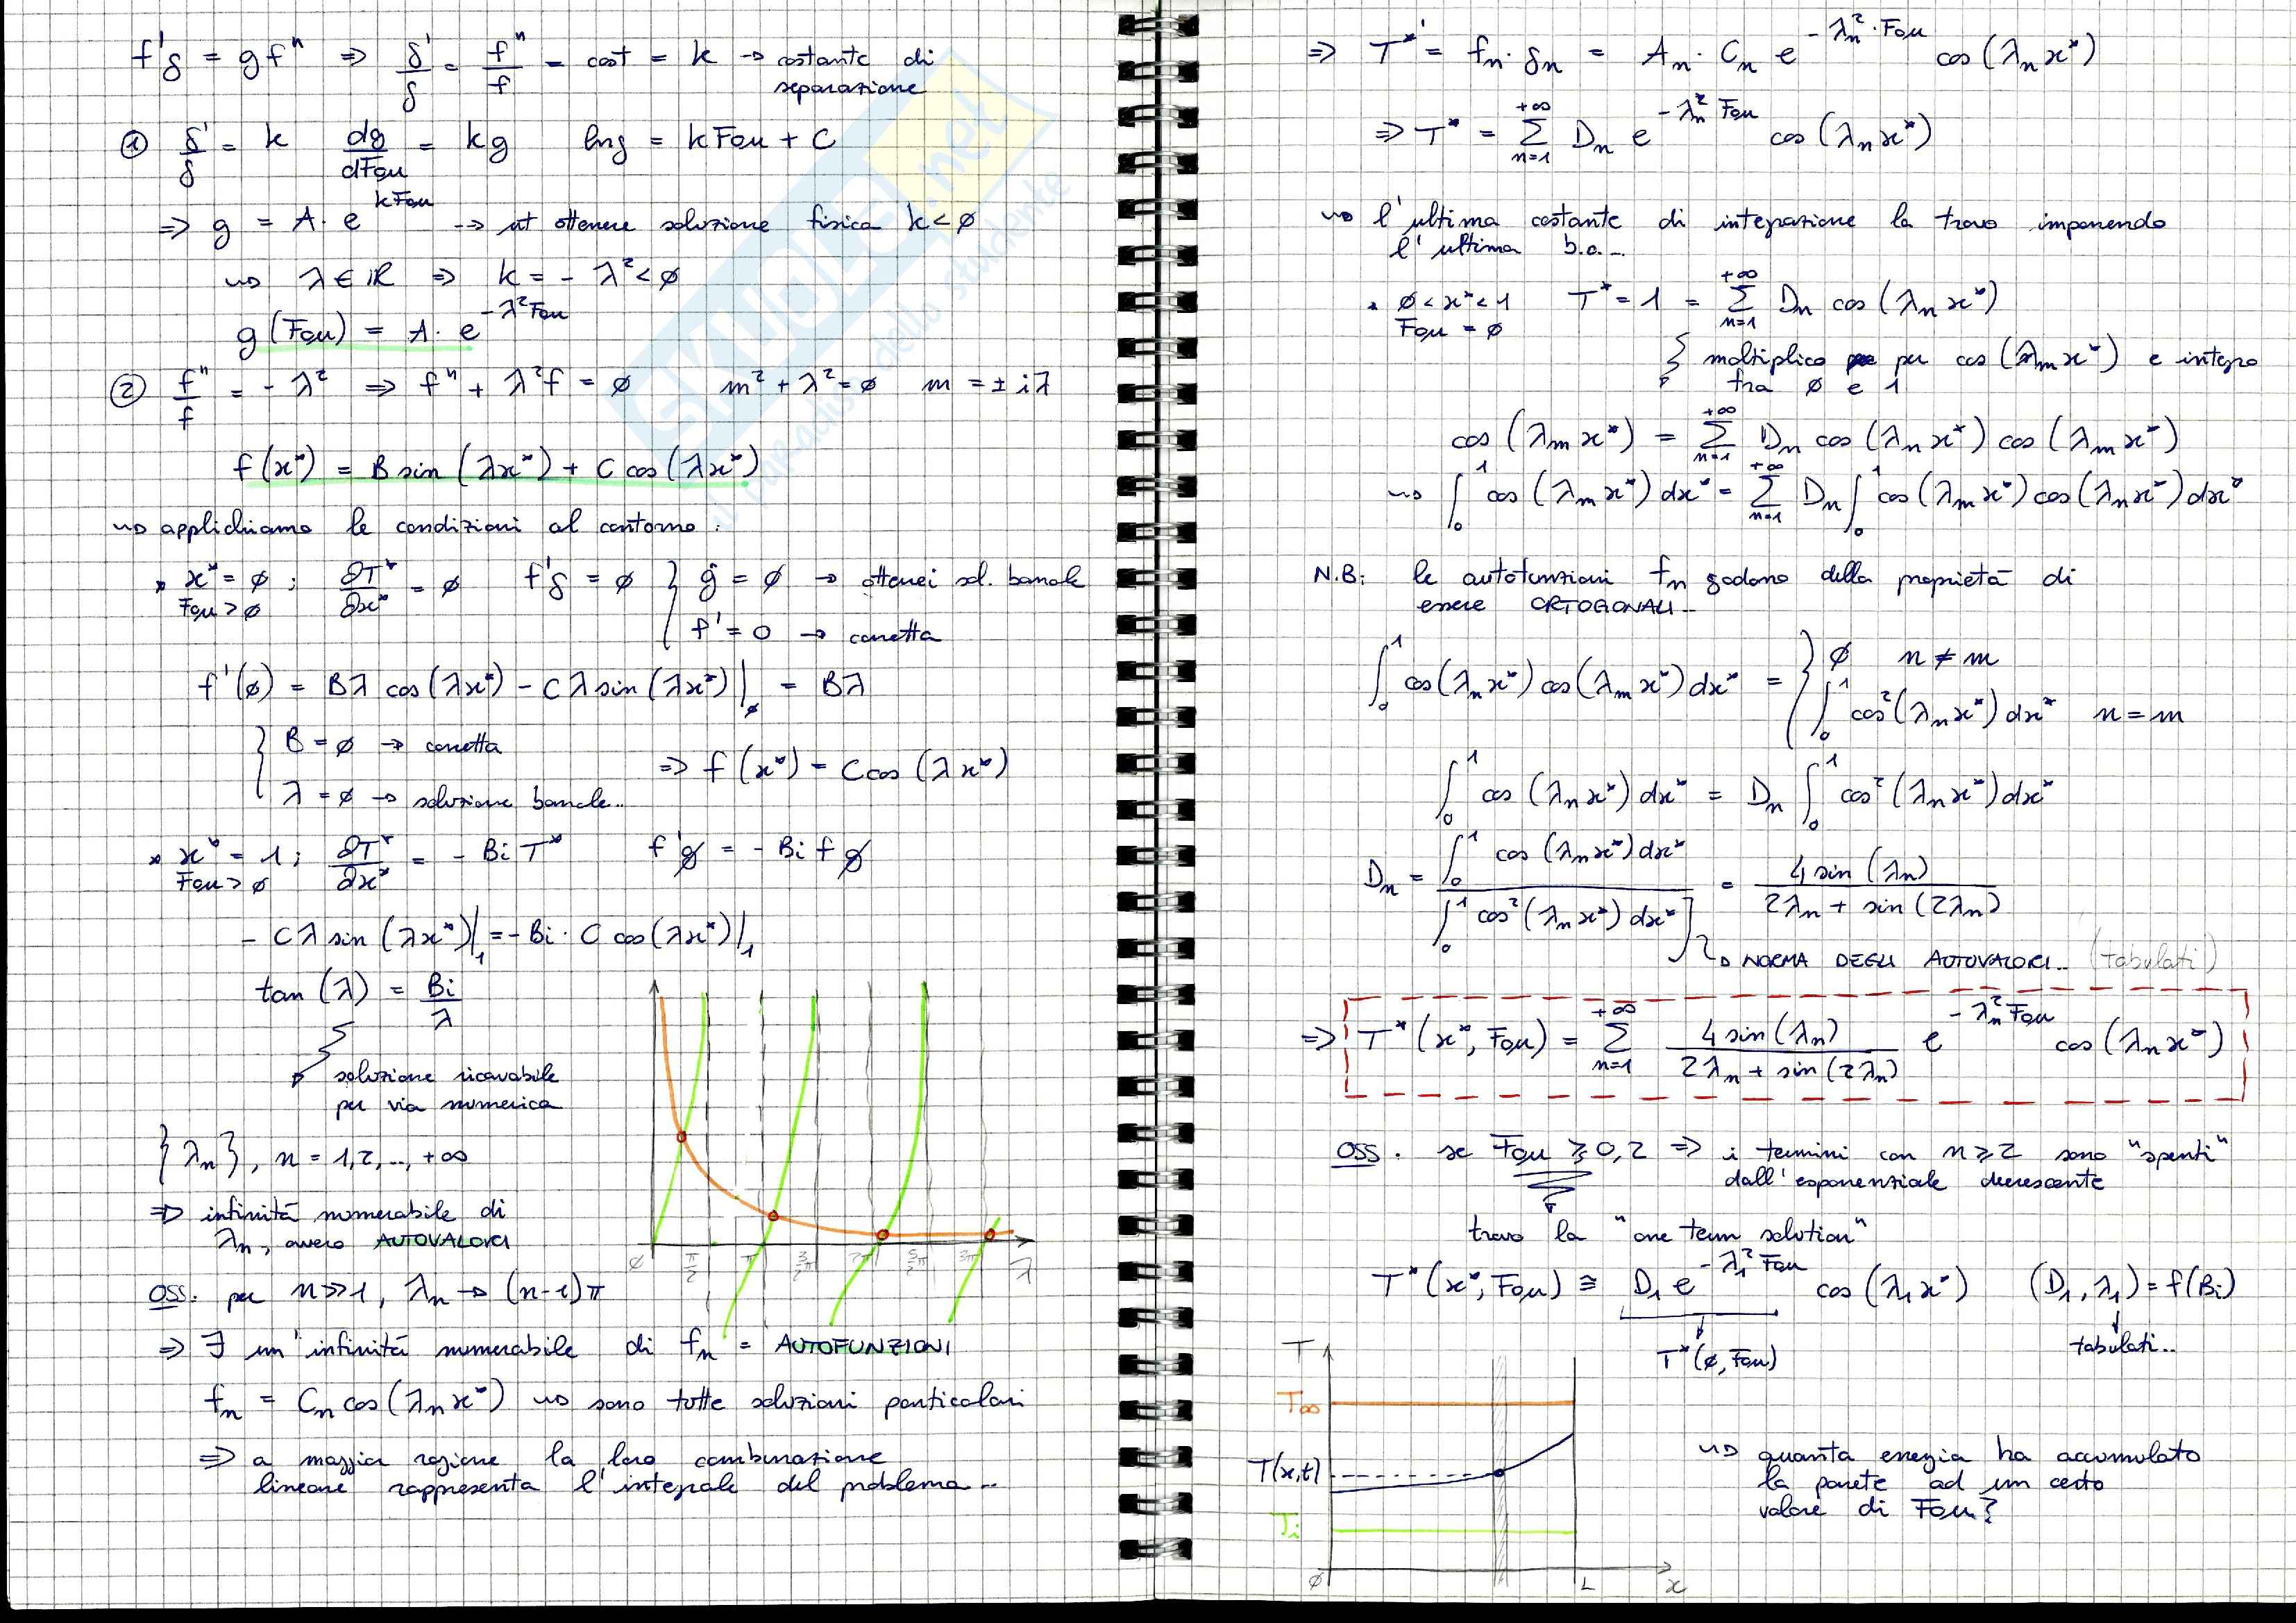 f'g = g f" ⇒ g'/g = f"/f = cost = k → costante di
separazione
① g'/g = k   dg/dFou = kg   ln g = kFou + C
⇒ g = A · e^(kFou) → ut ottenere soluzione fisica k < ∅
⇝ λ ∈ ℝ ⇒ k = - λ² < ∅
g(Fou) = A · e^(-λ²Fou)
② f"/f = - λ² ⇒ f" + λ²f = ∅   m² + λ² = ∅   m = ± iλ
f(x*) = B sin(λx*) + C cos(λx*)
⇝ applichiamo le condizioni al contorno:
* x* = ∅ ; ∂T*/∂x* = ∅   f'g = ∅ { g = ∅ → otterrei sol. banale
Fou > ∅
f' = 0 → corretta
f'(∅) = Bλ cos(λx*) - Cλ sin(λx*)|_∅ = Bλ
{ B = ∅ → corretta
⇒ f(x*) = C cos(λx*)
λ = ∅ → soluzione banale..
* x* = 1 ; ∂T*/∂x* = - Bi T*   f'g = - Bi f g
Fou > ∅
- Cλ sin(λx*)|₁ = - Bi · C cos(λx*)|₁
tan(λ) = Bi/λ
soluzione ricavabile
per via numerica
{λn}, n = 1,2,.., +∞
⇒ infinità numerabile di
λn, ovvero AUTOVALORI
∅ π/2 π 3/2π 2π 5/2π 3π λ
OSS. per n ≫ 1, λn → (n-1)π
⇒ ∃ un'infinità numerabile di fn = AUTOFUNZIONI
fn = Cn cos(λn x*) ⇝ sono tutte soluzioni particolari
⇒ a maggior ragione la loro combinazione
lineare rappresenta l'integrale del problema..
⇒ T* = fn · gn = An · Cn e^(-λn² · Fou) cos(λn x*)
⇒ T* = Σ_(n=1)^(+∞) Dn e^(-λn² Fou) cos(λn x*)
⇝ l'ultima costante di integrazione la trovo imponendo
l'ultima b.c..
* ∅ < x* < 1   T* = 1 = Σ_(n=1)^(+∞) Dn cos(λn x*)
Fou = ∅
moltiplico per cos(λm x*) e integro
fra ∅ e 1
cos(λm x*) = Σ_(n=1)^(+∞) Dn cos(λn x*) cos(λm x*)
⇝ ∫₀¹ cos(λm x*) dx* = Σ_(n=1)^(+∞) Dn ∫₀¹ cos(λm x*) cos(λn x*) dx*
N.B: le autofunzioni fn godono della proprietà di
essere ORTOGONALI..
∫₀¹ cos(λn x*) cos(λm x*) dx* = { ∅   n ≠ m
∫₀¹ cos²(λn x*) dx*   n = m
∫₀¹ cos(λn x*) dx* = Dn ∫₀¹ cos²(λn x*) dx*
Dn = ∫₀¹ cos(λn x*) dx* / ∫₀¹ cos²(λn x*) dx* = 4 sin(λn) / (2λn + sin(2λn))
→ NORMA DEGLI AUTOVALORI.. (tabulati)
⇒ T*(x*, Fou) = Σ_(n=1)^(+∞) 4 sin(λn) / (2λn + sin(2λn)) e^(-λn² Fou) cos(λn x*)
OSS. se Fou ⩾ 0,2 ⇒ i termini con n ⩾ 2 sono "spenti"
dall'esponenziale decrescente
trovo la "one term solution"
T*(x*, Fou) ≅ D₁ e^(-λ₁² Fou) cos(λ₁x*)   (D₁, λ₁) = f(Bi)
T*(∅, Fou)   tabulati..
T
T∞
T(x,t)
Ti
∅ L x
⇝ quanta energia ha accumulato
la parete ad un certo
valore di Fou?
SKUOLA.net
il paradiso dello studente